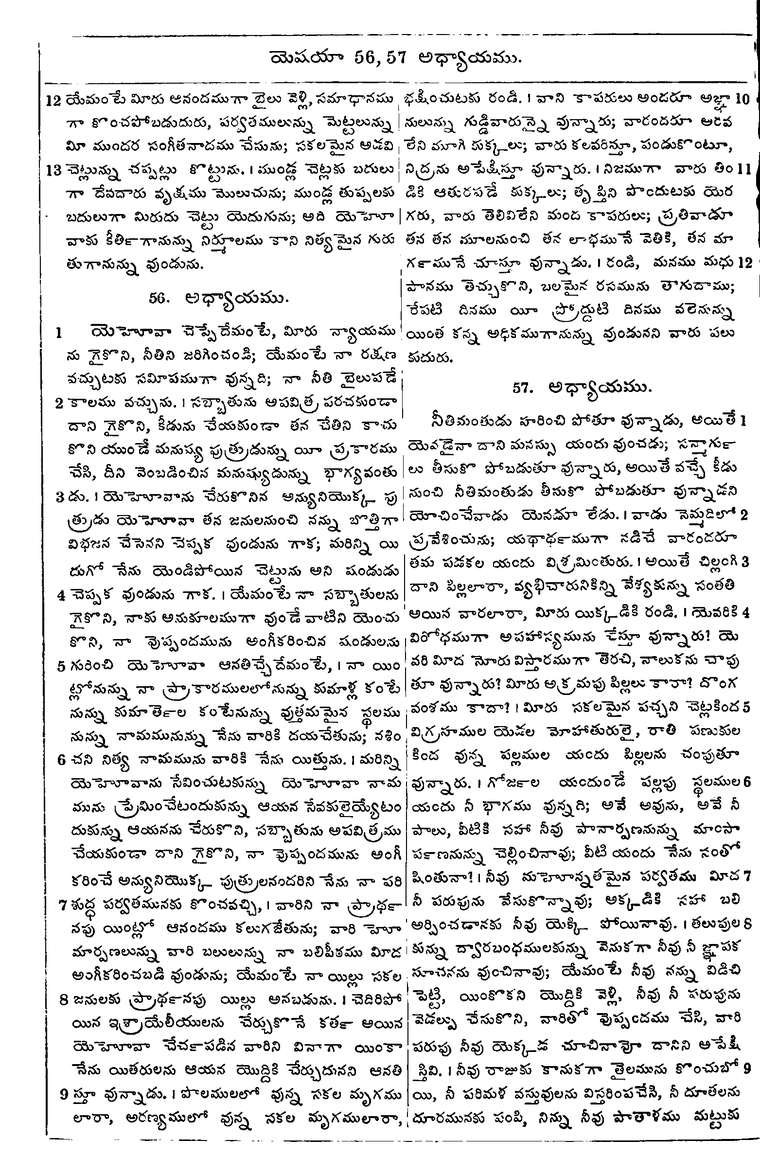 యెషయా 56, 57 అధ్యాయము.
12 యేమంటే మీరు ఆనందముగా బైలు వెళ్లి, సమాధానము
గా కొంచపోబడుదురు, పర్వతములున్ను మెట్టలున్ను
మీ ముందర సంగీతనాదము చేసును; సకలమైన అడవి
13 చెట్లున్ను చప్పట్లు కొట్టును. । ముండ్ల చెట్లకు బదులు
గా దేవదారు వృక్షము మొలుచును; ముండ్ల తుప్పలకు
బదులుగా మిరుదు చెట్టు యెదుగును; అది యెహోవా
వాకు కీర్తిగానున్ను నిర్మూలము కాని నిత్యమైన గురు
తుగానున్ను వుండును.
56. అధ్యాయము.
1 యెహోవా చెప్పేదేమంటే, మీరు న్యాయము
ను గైకొని, నీతిని జరిగించండి; యేమంటే నా రక్షణ
వచ్చుటకు సమీపముగా వున్నది; నా నీతి బైలుపడే
2 కాలము వచ్చును. । సబ్బాతును అపవిత్ర పరచకుండా
దాని గైకొని, కీడును చేయకుండా తన చేతిని కాచు
కొని యుండే మనుష్య పుత్రుడున్ను యీ ప్రకారము
చేసి, దీని వెంబడించిన మనుష్యుడున్ను భాగ్యవంతు
3 డు. । యెహోవాను చేరుకొనిన అన్యునియొక్క పు
త్రుడు యెహోవా తన జనులనుంచి నన్ను బొత్తిగా
విభజన చేసెనని చెప్పక వుండును గాక; మరిన్ని యి
దుగో నేను యెండిపోయిన చెట్టును అని షండుడు
4 చెప్పక వుండును గాక. । యేమంటే నా సబ్బాతులను
గైకొని, నాకు అనుకూలముగా వుండే వాటిని యెంచు
కొని, నా వొప్పందమును అంగీకరించిన షండులను
5 గురించి యెహోవా ఆనతిచ్చేదేమంటే, । నా యిం
ట్లోనున్ను నా ప్రాకారములలోనున్ను కుమాళ్ల కంటే
నున్ను కుమార్తెల కంటేనున్ను వుత్తమమైన స్థలము
నున్ను నామమునున్ను నేను వారికి దయచేతును; నశిం
6 చని నిత్య నామమును వారికి నేను యిత్తును. । మరిన్ని
యెహోవాను సేవించుటకున్ను యెహోవా నామ
మును ప్రేమించేటందుకున్ను ఆయన సేవకులైయ్యేటం
దుకున్ను ఆయనను చేరుకొని, సబ్బాతును అపవిత్రము
చేయకుండా దాని గైకొని, నా వొప్పందమును అంగీ
కరించే అన్యునియొక్క పుత్రులనందరిని నేను నా పరి
7 శుద్ధ పర్వతమునకు కొంచవచ్చి, । వారిని నా ప్రార్థ
నపు యింట్లో ఆనందము కలుగజేతును; వారి హో
మార్పణలున్ను వారి బలులున్ను నా బలిపీకము మీద
అంగీకరించబడి వుండును; యేమంటే నా యిల్లు సకల
8 జనులకు ప్రార్థనపు యిల్లు అనబడును. । చెదిరిపో
యిన ఇశ్రాయేలీయులను చేర్చుకొనే కర్త అయిన
యెహోవా చేర్చపడిన వారిని వినాగా యింకా
నేను యితరులను ఆయన యొద్దికి చేర్చుదునని ఆనతి
9 స్తూ వున్నాడు. । పొలములలో వున్న సకల మృగము
లారా, అరణ్యములో వున్న సకల మృగములారా,
భక్షించుటకు రండి. । వాని కాపరులు అందరూ అజ్ఞా 10
నులున్ను గుడ్డివారున్నై వున్నారు; వారందరూ అరవ
లేని మూగి కుక్కలు; వారు కలవరిస్తూ, పండుకొంటూ,
నిద్రను అపేక్షిస్తూ వున్నారు. । నిజముగా వారు తిం 11
డికి ఆతురపడే కుక్కలు; తృప్తిని పొందుటకు యెర
గరు, వారు తెలివిలేని మంద కాపరులు; ప్రతివాడూ
తన తన మూలనుంచి తన లాభమునే వెతికి, తన మా
ర్గమునే చూస్తూ వున్నాడు. । రండి, మనము మధు 12
పానము తెచ్చుకొని, బలమైన రసమును తాగుదాము;
రేపటి దినము యీ ప్రోద్దుటి దినము వలెనున్ను
యింత కన్న అధికముగానున్ను వుండునని వారు పలు
కుదురు.
57. అధ్యాయము.
నీతిమంతుడు హరించి పోతూ వున్నాడు, అయితే 1
యెవడైనా దాని మనస్సు యందు వుంచడు; సన్మార్గు
లు తీసుకొ పోబడుతూ వున్నారు, అయితే వచ్చే కీడు
నుంచి నీతిమంతుడు తీసుకొ పోబడుతూ వున్నాడని
యోచించేవాడు యెవడూ లేడు. । వాడు నెమ్మదిలో 2
ప్రవేశించును; యథార్థముగా నడిచే వారందరూ
తమ పడకల యందు విశ్రమింతురు. । అయితే చిల్లంగి 3
దాని పిల్లలారా, వ్యభిచారునికిన్ని వేశ్యకున్ను సంతతి
అయిన వారలారా, మీరు యిక్కడికి రండి. । యెవరికి 4
విరోధముగా అపహాస్యమును చేస్తూ వున్నారు? యె
వరి మీద నోరు విస్తారముగా తెరచి, నాలుకను చాపు
తూ వున్నారు? మీరు అక్రమపు పిల్లలు కారా? దొంగ
వంశము కాదా? । మీరు సకలమైన పచ్చని చెట్లకింద 5
విగ్రహముల యెడల మోహాతురులై, రాతి పణుకుల
కింద వున్న పల్లముల యందు పిల్లలను చంపుతూ
వున్నారు. । గోర్జల యందుండే పల్లపు స్థలముల 6
యందు నీ భాగము వున్నది; అవే అవును, అవే నీ
పాలు, వీటికి సహా నీవు పానార్పణనున్ను మాంసా
ర్పణనున్ను చెల్లించినావు; వీటి యందు నేను సంతో
షింతునా? । నీవు మహోన్నతమైన పర్వతము మీద 7
నీ పరుపును వేసుకొన్నావు; అక్కడికి సహా బలి
అర్పించడానకు నీవు యెక్కి పోయినావు. । తలుపుల 8
కున్ను ద్వారబంధములకున్ను వెనుకగా నీవు నీ జ్ఞాపక
సూచనను వుంచినావు; యేమంటే నీవు నన్ను విడిచి
పెట్టి, యింకొకని యొద్దికి వెళ్లి, నీవు నీ పరుపును
వెడల్పు చేసుకొని, వారితో వొప్పందము చేసి, వారి
పరుపు నీవు యెక్కడ చూచినావో దానిని అపేక్షి
స్తివి. । నీవు రాజుకు కానుకగా తైలమును కొంచుబో 9
యి, నీ పరిమళ వస్తువులను విస్తరింపచేసి, నీ దూతలను
దూరమునకు పంపి, నిన్ను నీవు పాతాళము మట్టుకు